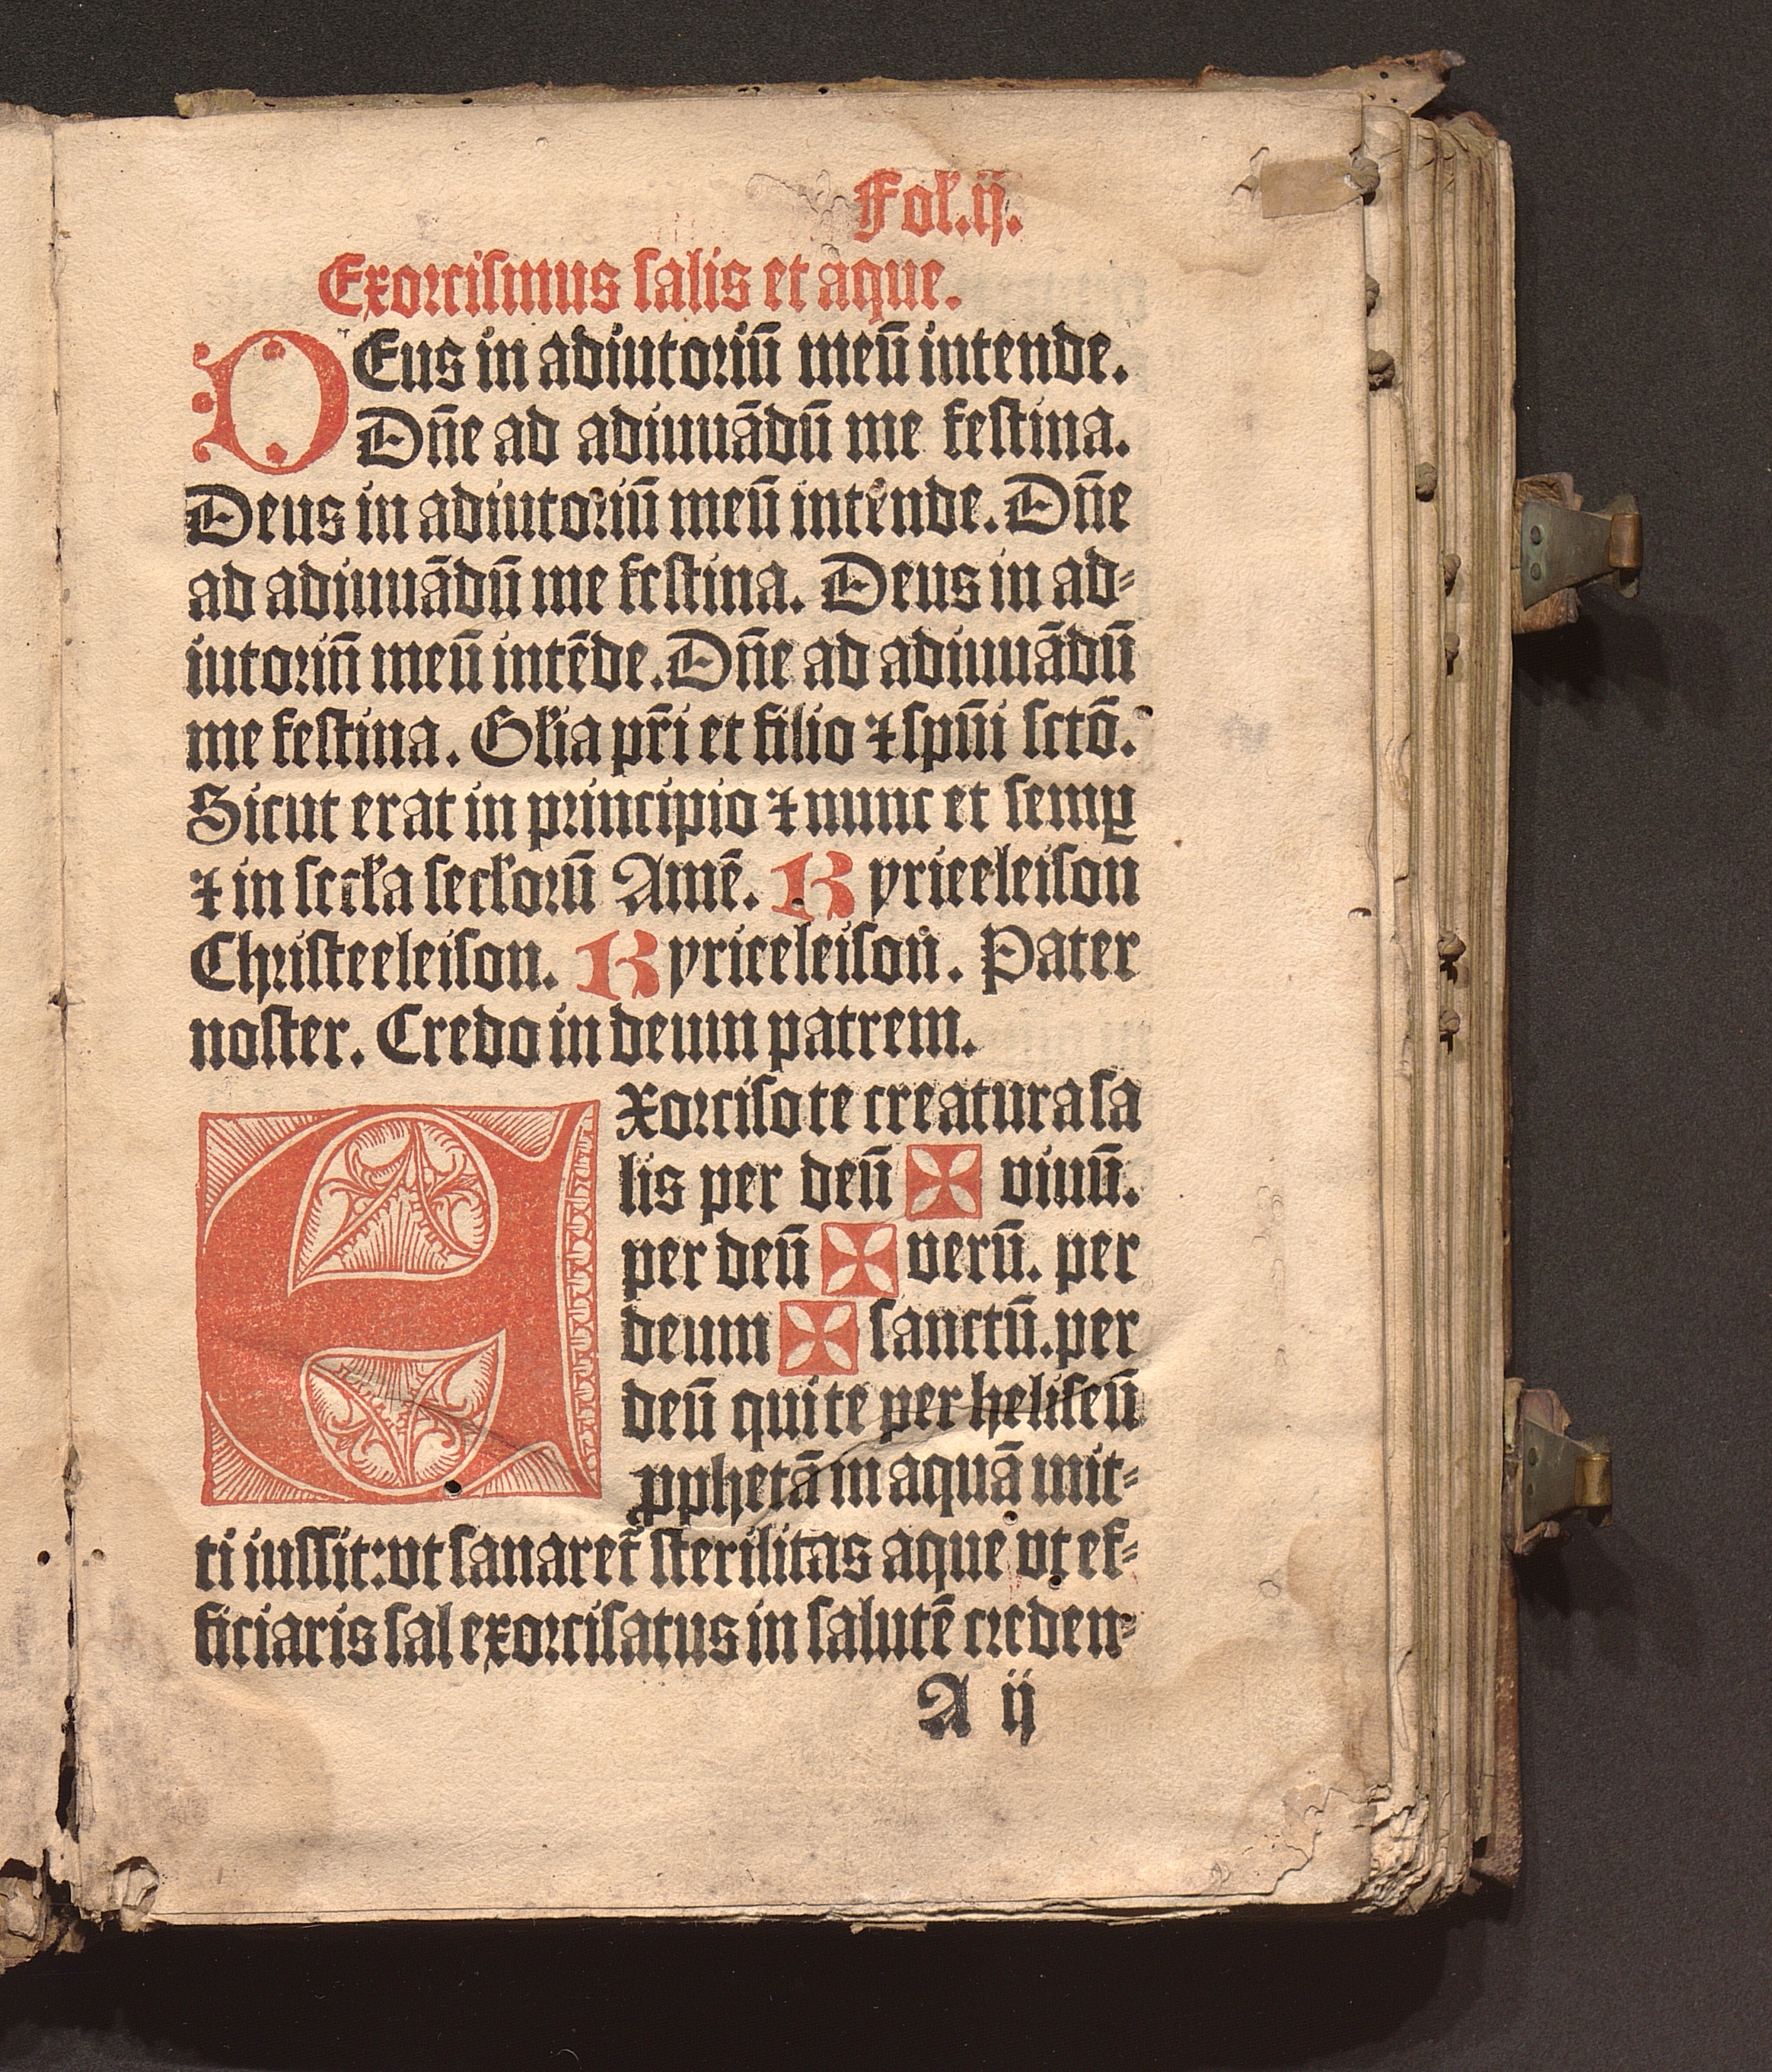 Fol.ij.
Exorcismus salis et aque.
DEus in adiutoriū meū intende.
Dn̄e ad adiuuādū me festina.
Deus in adiutoriū meū intende. Dn̄e
ad adiuuādū me festina. Deus in ad⸗
iutoriū meū intēde. Dn̄e ad adiuuādū
me festina. Gl'ia pr̄i et filio ⁊ spūi sctō.
Sicut erat in principio ⁊ nunc et semꝑ
⁊ in secl'a secl'orū Amē. Kyrieeleison
Christeeleison. Kyrieeleison. Pater
noster. Credo in deum patrem.
EXorciso te creatura sa
lis per deū ✠ viuū.
per deū ✠ verū. per
deum ✠ sanctū. per
deū qui te per heliseū
ꝓphetā in aquā mit⸗
ti iussit: vt sanaret᷑ sterilitas aque vt ef⸗
ficiaris sal exorcisatus in salutē creden⸗
A ij